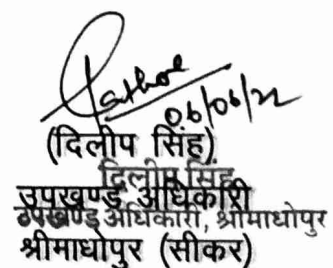 Rathore
06/06/22
(दिलीप सिंह)
दिलीप सिंह
उपखण्ड अधिकारी
उपखण्ड अधिकारी, श्रीमाधोपुर
श्रीमाधोपुर (सीकर)